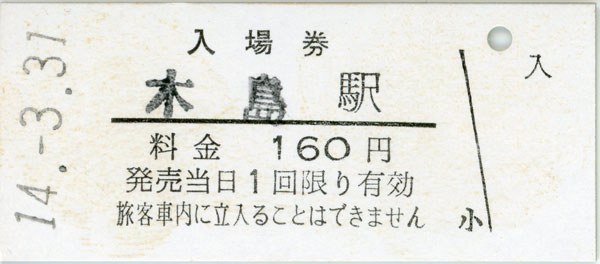 入場券
木島駅
料金 160円
発売当日1回限り有効
旅客車内に立入ることはできません
14.-3.31
入
小